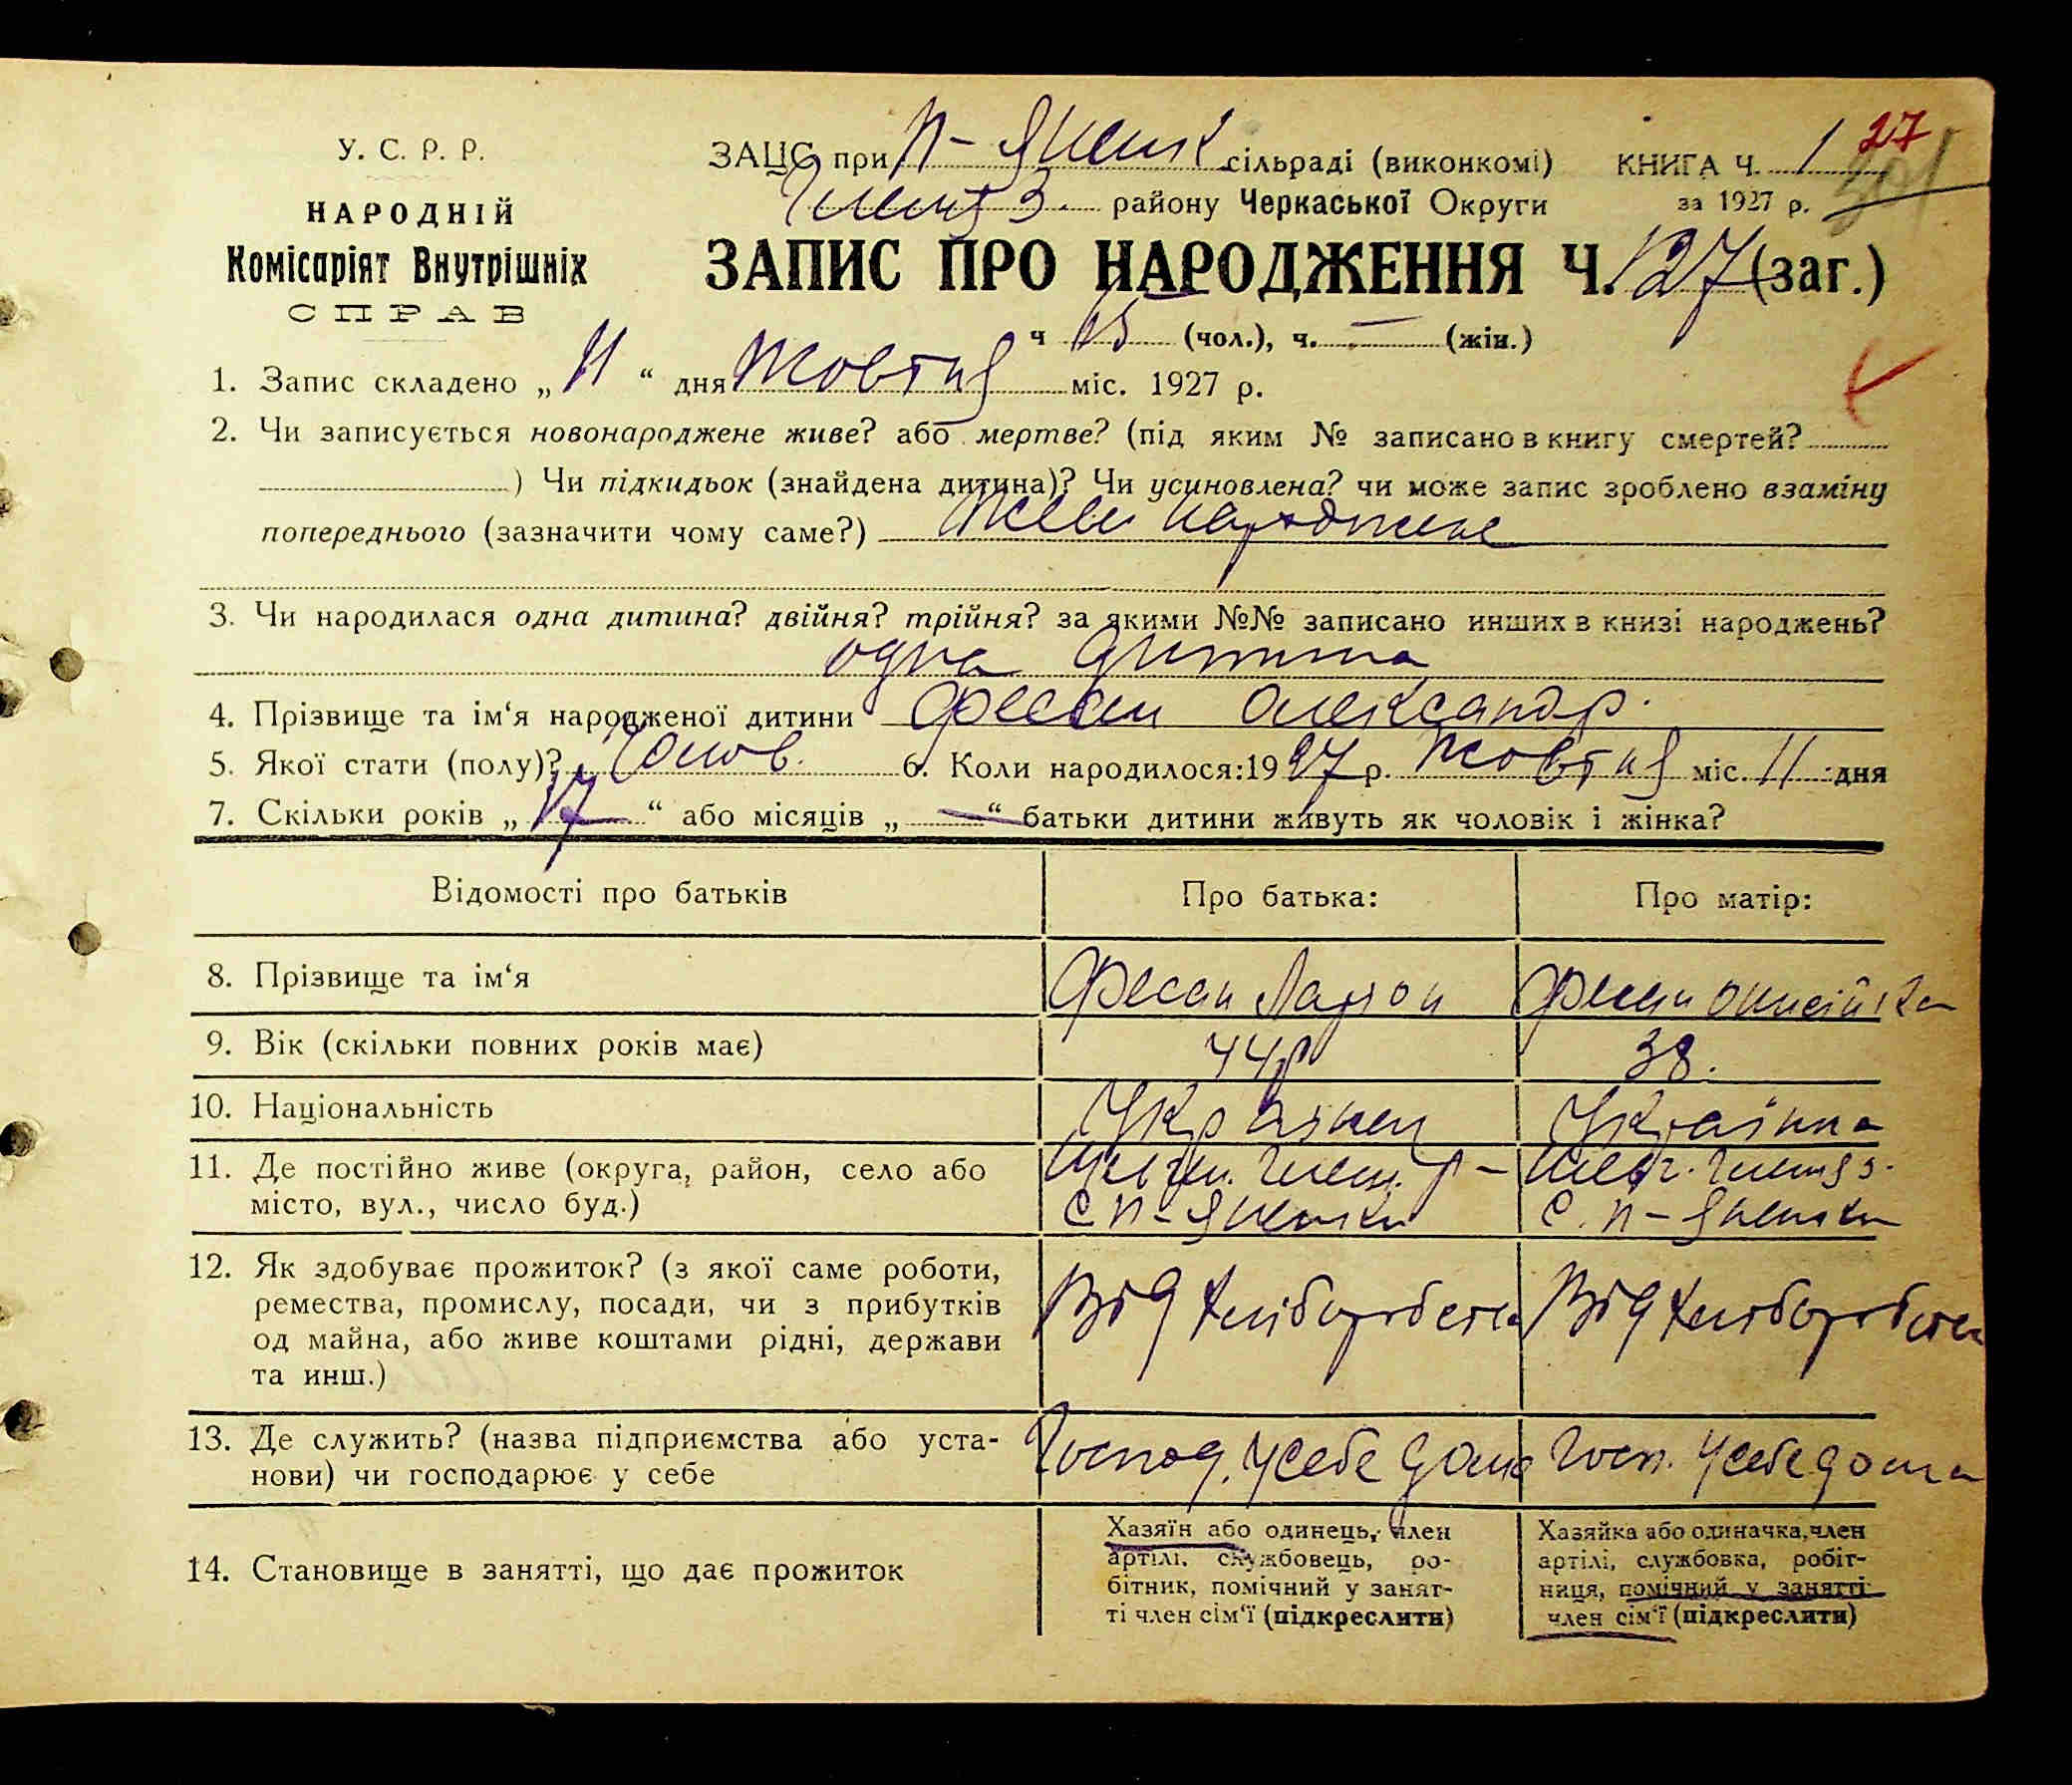 У. С. Р. Р.
НАРОДНІЙ
Комісаріят Внутрішніх
СПРАВ
ЗАЦС при П- сільраді (виконкомі) КНИГА Ч. 1 27
району Черкаської Округи за 1927 р.
ЗАПИС ПРО НАРОДЖЕННЯ Ч. 127 (заг.)
ч 65 (чол.), ч. — (жін.)
1. Запис складено „ 11 “ дня Жовтня міс. 1927 р.
2. Чи записується новонароджене живе? або мертве? (під яким № записано в книгу смертей?
) Чи підкидьок (знайдена дитина)? Чи усиновлена? чи може запис зроблено взаміну
попереднього (зазначити чому саме?) Живе народжене
3. Чи народилася одна дитина? двійня? трійня? за якими №№ записано инших в книзі народжень?
одна дитина
4. Прізвище та ім‘я народженої дитини Фесан Олександр.
5. Якої стати (полу)? Чолов. 6. Коли народилося: 1927 р. Жовтня міс. 11 дня
7. Скільки років „ 17 “ або місяців „ — “ батьки дитини живуть як чоловік і жінка?
Відомості про батьків Про батька: Про матір:
8. Прізвище та ім‘я Фесан Ларіон Фесан
9. Вік (скільки повних років має) 44р 38.
10. Національність Українец Українка
11. Де постійно живе (округа, район, село або
місто, вул., число буд.) С П- С. П-
12. Як здобуває прожиток? (з якої саме роботи,
ремества, промислу, посади, чи з прибутків
од майна, або живе коштами рідні, держави
та инш.)
Від хліборобства Від хліборобства
13. Де служить? (назва підприємства або уста-
нови) чи господарює у себе
Господ. у себе дома Госп. у себе дома
14. Становище в занятті, що дає прожиток
Хазяїн або одинець, член
артілі, службовець, ро-
бітник, помічний у занят-
ті член сім‘ї (підкреслити)
Хазяйка або одиначка, член
артілі, службовка, робіт-
ниця, помічний у занятті
член сім‘ї (підкреслити)